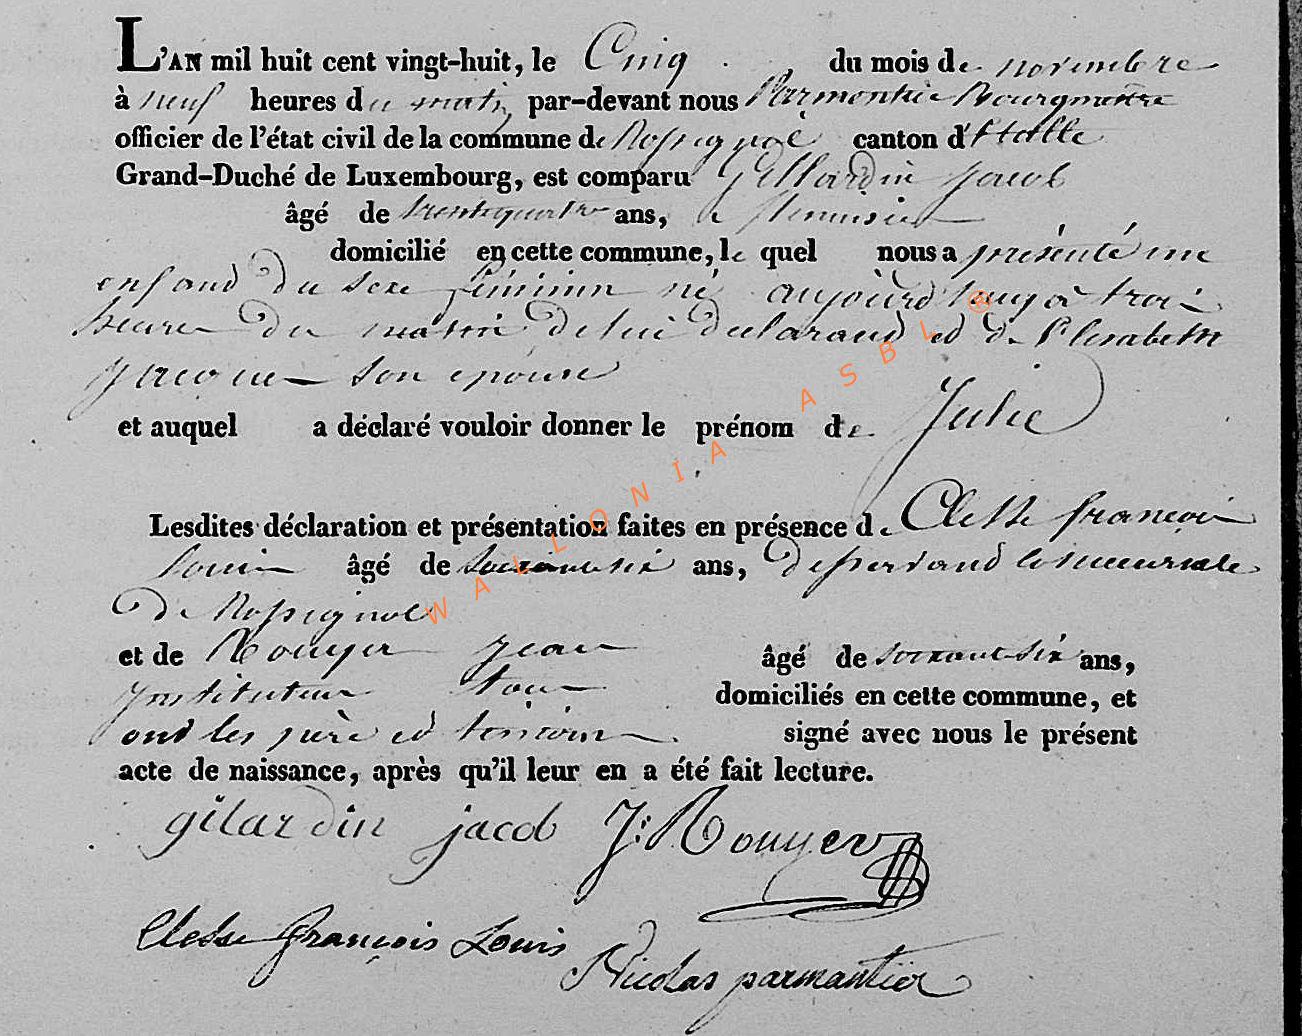 L'AN mil huit cent vingt-huit, le Cinq du mois de novembre
à neuf heures du matin par-devant nous Parmentier Bourgmestre
officier de l'état civil de la commune de Rossignol canton d'Etalle
Grand-Duché de Luxembourg, est comparu Gillardin Jacob
âgé de trentequatre ans, menuisier
domicilié en cette commune, le quel nous a présenté une
enfand du sexe féminin né aujourd'huy à trois
heures du matin de lui declarand et de Elisabeth
Jacques son epouse
et auquel a déclaré vouloir donner le prénom de Julie
Lesdites déclaration et présentation faites en présence de Clesse françois
louis âgé de soixantesix ans, desservand la succursale
de Rossignol
et de Rouyer jean âgé de soixante six ans,
Instituteur tous domiciliés en cette commune, et
ond les père et témoins signé avec nous le présent
acte de naissance, après qu'il leur en a été fait lecture.
gilardin jacob J: Rouyer
Clesse françois Louis
Nicolas parmantier
WALLONIA ASBL ®